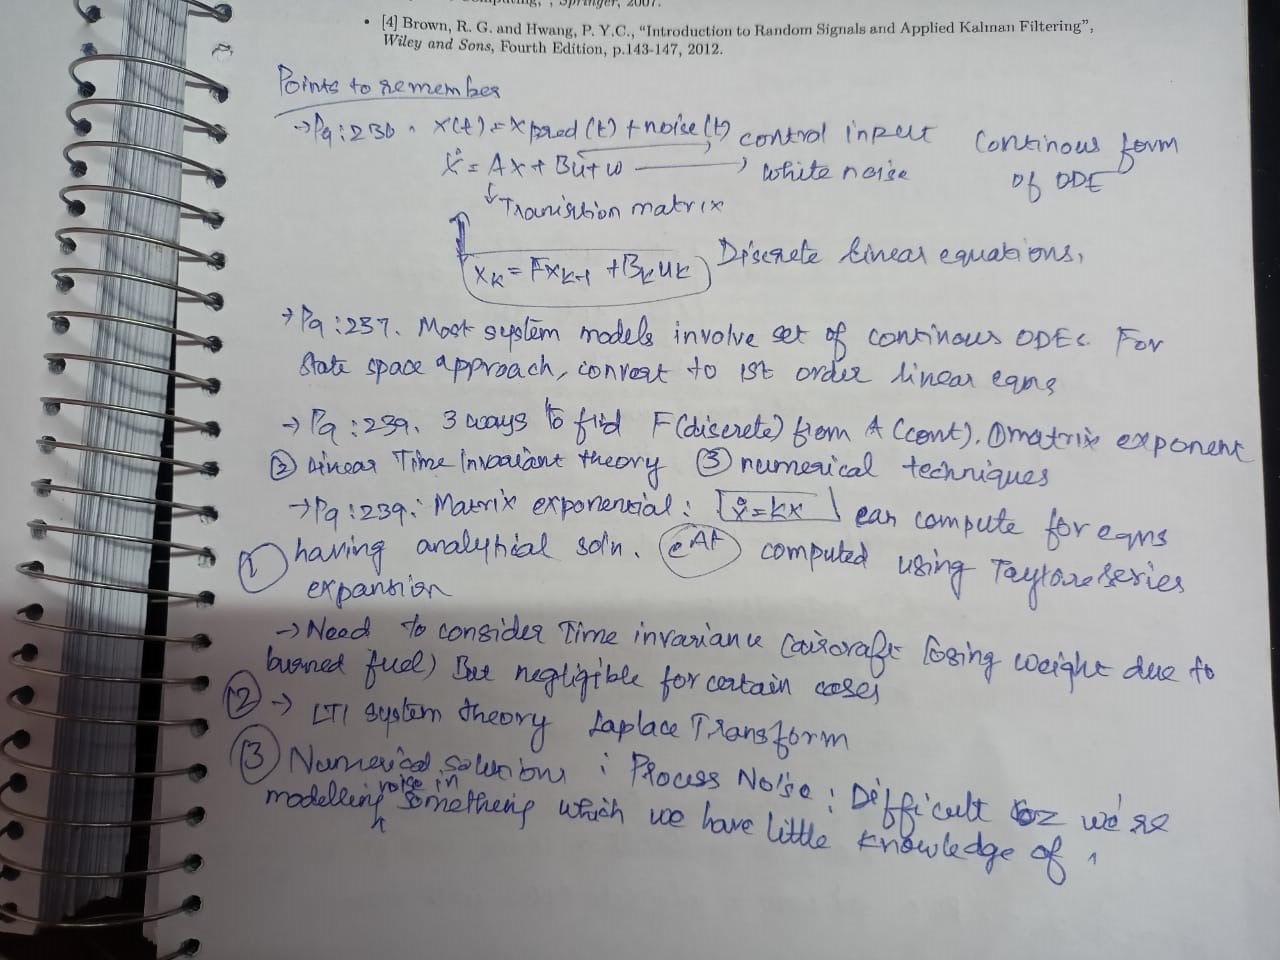 Computing, , Springer, 2007.
• [4] Brown, R. G. and Hwang, P. Y.C., “Introduction to Random Signals and Applied Kalman Filtering”,
Wiley and Sons, Fourth Edition, p.143-147, 2012.
Points to remember
→ Pg : 236 . x(t) = x pred (t) + noise (t) control input Continous form
ẋ = Ax + Bu + w white noise of ODE
↓ Transition matrix
xk = Fxk-1 + Bk uk Discrete linear equations.
→ Pg : 237. Most system models involve set of continous ODEs. For
state space approach, convert to 1st order linear eqns
→ Pg : 239. 3 ways to find F (discrete) from A (cont). ① matrix exponent
② Linear Time Invariant theory ③ numerical techniques
→ Pg : 239: Matrix exponential : ẋ = kx can compute for eqns
① having analytical soln. e^At computed using Taylore series
expansion
→ Need to consider Time invariance (aircraft losing weight due to
burned fuel) But negligible for certain cases
② → LTI system theory Laplace Transform
③ Numerical solutions : Process Noise : Difficult coz we're
modelling noise in something which we have little knowledge of .